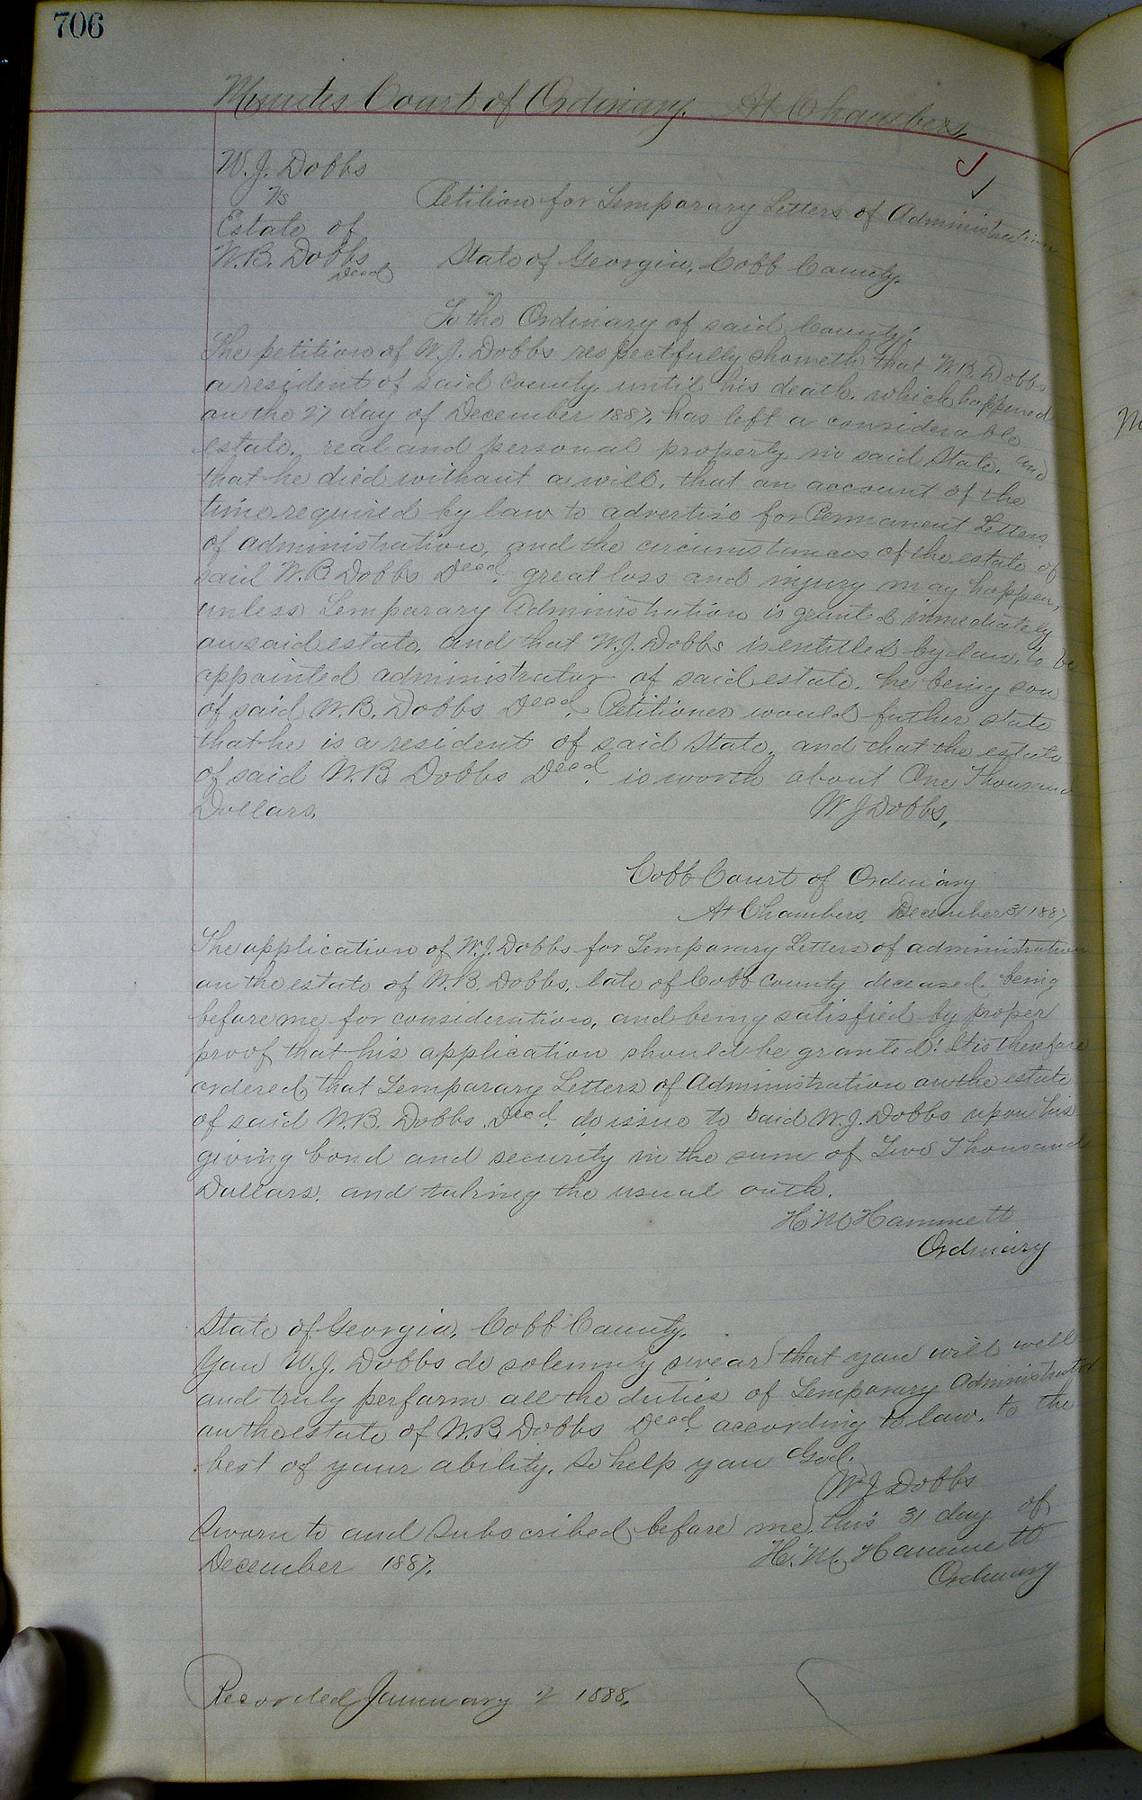 706
Minutes Court of Ordinary. At Chambers.
W. J. Dobbs
vs
Estate of
W. B. Dobbs
Decd
Petition for Temporary Letters of Administration
State of Georgia, Cobb County.
To the Ordinary of said County:
The petition of W. J. Dobbs respectfully showeth that W. B. Dobbs
a resident of said county until his death, which happened
on the 27 day of December 1887, has left a considerable
estate, real and personal property in said State, and
that he died without a will, that on account of the
time required by law to advertise for Permanent Letters
of administration, and the circumstances of the estate of
said W. B. Dobbs Decd. great loss and injury may happen,
unless Temporary Administration is granted immediately
on said estate, and that W. J. Dobbs is entitled by law, to be
appointed administrator of said estate, he being son
of said W. B. Dobbs Decd. Petitioner would futher state
that he is a resident of said State, and that the estate
of said W. B Dobbs Decd. is worth about One Thousand
Dollars.
W J Dobbs,
Cobb Court of Ordinary
At Chambers, December 31 1887
The application of W. J. Dobbs for Temporary Letters of administration
on the estate of W. B. Dobbs, late of Cobb County deceased, being
before me for consideration, and being satisfied by proper
proof that his application should be granted: It is therefore
ordered, that Temporary Letters of Administration on the estate
of said W. B. Dobbs, Decd. do issue to Said W. J. Dobbs upon his
giving bond and security in the sum of Two Thousand
Dollars, and taking the usual oath.
H M Hammett
Ordinary
State of Georgia, Cobb County.
You W. J. Dobbs do solemnly swear that you will well
and truly perform all the duties of Temporary Administrator
on the estate of W. B. Dobbs Decd according to law, to the
best of your ability. So help you God.
W J Dobbs
Sworn to and Subscribed before me, this 31 day of
December 1887.
H. M. Hammett
Ordinary
Recorded January 2 1888.